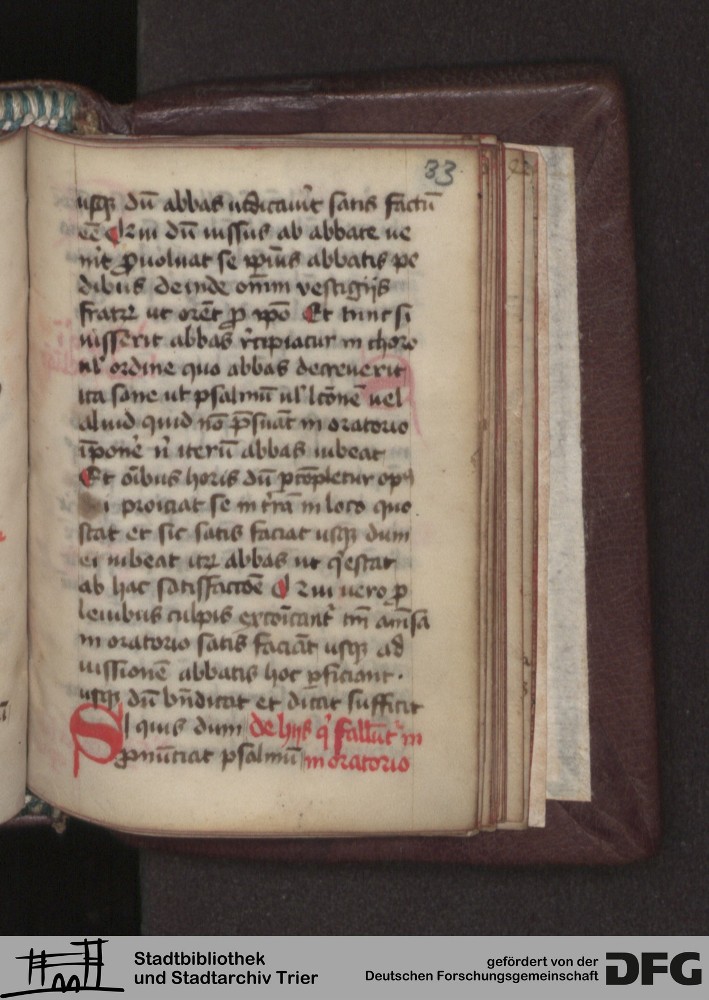 33
usq dū abbas iudicaverit satis factū
eē Qui dū iussus ab abbate ve
nit ꝓvoluat se ipsius abbatis pe
dibus deinde om̄m vestigijs
fratrū ut orēt ꝓ ipō Et tunc si
iusserit abbas recipiatur in choro
ul ordine quo abbas decreverit
ita sane ut psalmū ul lc̄onē vel
aliud quid nō p̄sumat in oratorio
īponere nisi iterū abbas iubeat
Et oībus horis dū ꝑcōpletur op
proiciat se in t̄ra in loco quo
stat et sic satis faciat usq dum
ei iubeat iterū abbas ut quiescat
ab hac satisfactōe Qui vero ꝓ
levibus culpis excōicant tm̄ a mēsa
in oratorio satis faciāt usq ad
iussionē abbatis hoc ꝑficiant .
usq dū bn̄dicat et dicat sufficit
Si quis dum de hijs q̄ fallūt in
ꝓnūtiat psalmū in oratorio
Stadtbibliothek
und Stadtarchiv Trier
gefördert von der
Deutschen Forschungsgemeinschaft
DFG